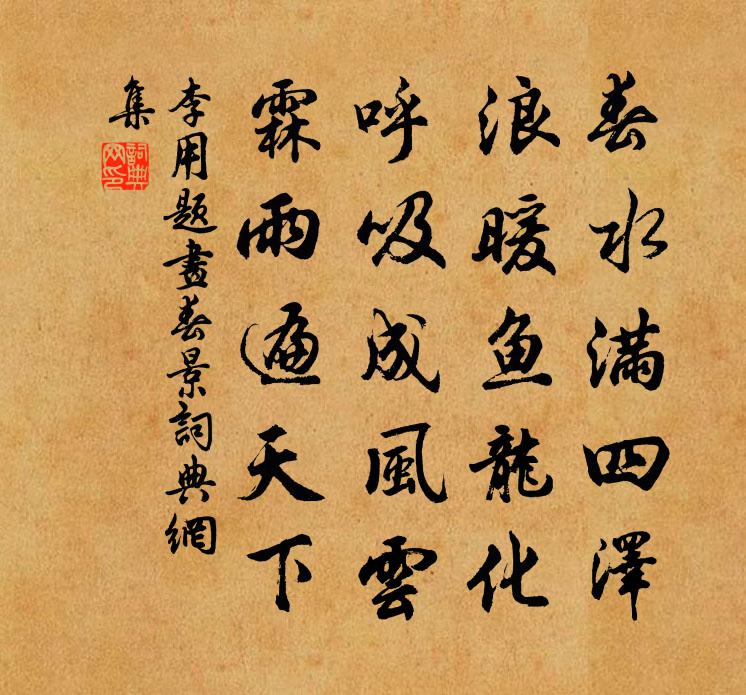 春水滿四澤
浪暖魚龍化
呼吸成風雲
霖雨遍天下
李用題畫春景詞典網
集
詞典網印